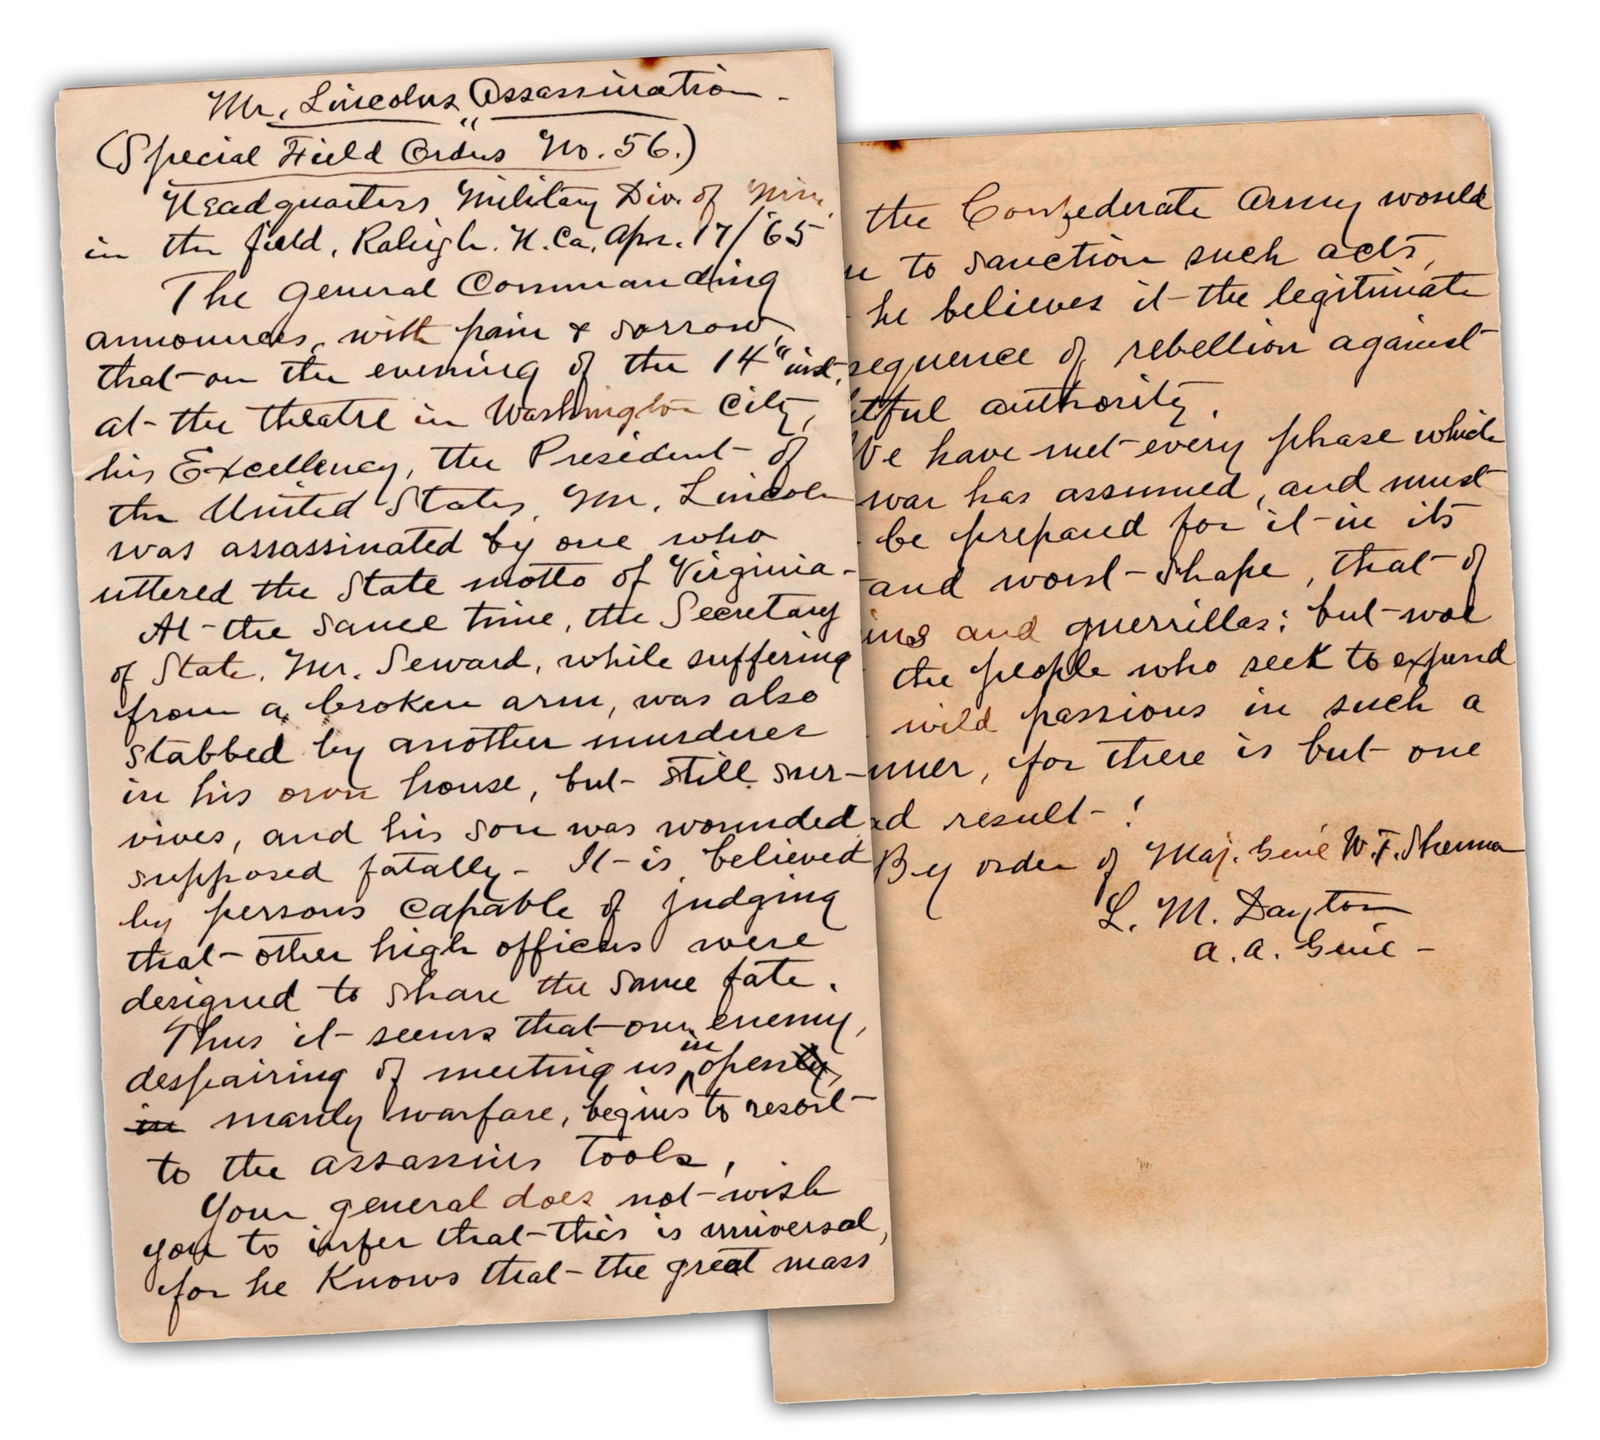 Mr. Lincolns Assassination -
(Special Field Orders No. 56.)
Headquarters Military Div. of Miss,
in the field, Raleigh. N. Ca, Apr. 17/65
The General Commanding
announces, with pain & sorrow
that on the evening of the 14" inst,
at the theatre in Washington City,
his Excellency, the President of
the United States, Mr. Lincoln
was assassinated by one who
uttered the State motto of Virginia -
At the same time, the Secretary
of State, Mr. Seward, while suffering
from a broken arm, was also
stabbed by another murderer
in his own house, but still sur-
vives, and his son was wounded
supposed fatally - It is believed
by persons capable of judging
that other high officers were
designed to share the same fate.
Thus it seems that our enemy,
despairing of meeting us in openly,
in manly warfare, begins to resort
to the assassins tools,
Your general does not wish
you to infer that this is universal,
for he knows that the great mass
the Confederate Army would
to sanction such acts,
he believes it the legitimate
sequence of rebellion against
tful authority.
We have met every phase which
war has assumed, and must
be prepared for it in its
and worst shape, that of
ins and guerrillas; but woe
the people who seek to expend
wild passions in such a
nner, for there is but one
ad result - !
By order of Maj. Genl W. T. Sherman
L. M. Dayton
A. A. Genl -